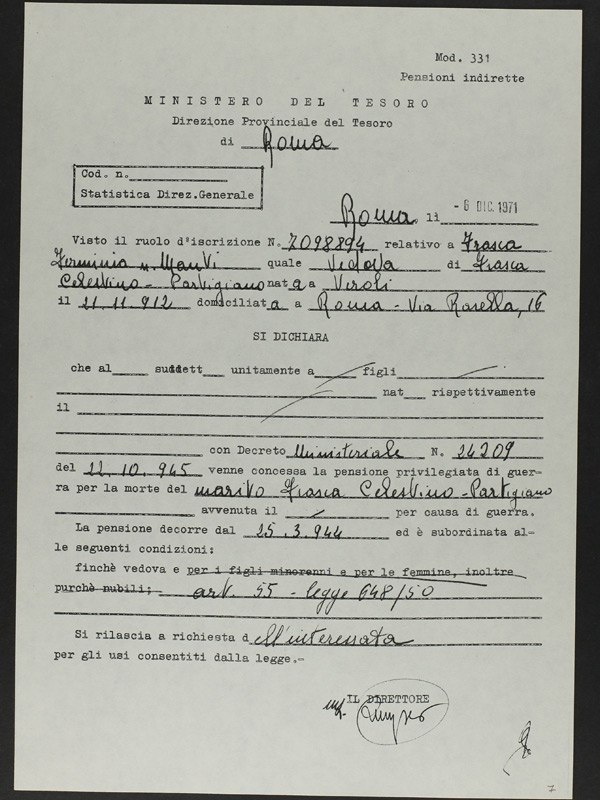 Mod. 331
Pensioni indirette
MINISTERO DEL TESORO
Direzione Provinciale del Tesoro
di Roma
Cod. n.
Statistica Direz.Generale
Roma lì - 6 DIC. 1971
Visto il ruolo d'iscrizione N. 7098894 relativo a Frasca
Erminia n. Manti quale Vedova di Frasca
Celestino - Partigiano nata a Veroli
il 21.11.912 domiciliata a Roma - Via Rosella, 16
SI DICHIARA
che al suddett unitamente a figli
nat rispettivamente
il
con Decreto Ministeriale N. 24209
del 22.10.945 venne concessa la pensione privilegiata di guer=
ra per la morte del marito Frasca Celestino - Partigiano
avvenuta il per causa di guerra.
La pensione decorre dal 25.3.944 ed è subordinata al=
le seguenti condizioni:
finchè vedova e per i figli minorenni e per le femmine, inoltre
purchè nubili; art. 55 - legge 648/50
Si rilascia a richiesta dell'interessata
per gli usi consentiti dalla legge.=
IL DIRETTORE
7